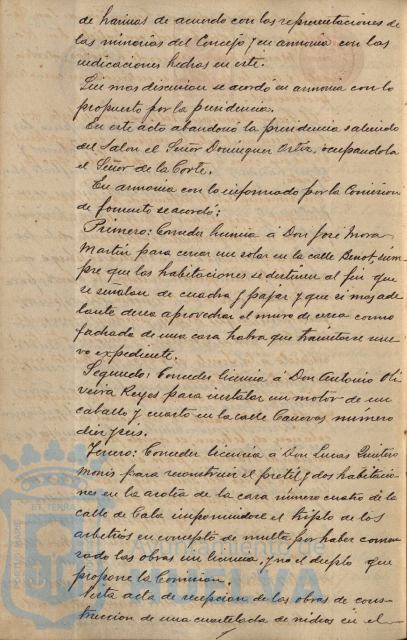 de harinas de acuerdo con las representaciones de
las minorias del Concejo y en armonia con las
indicaciones hechas en este.
Sin mas discusion se acordó en armonia con lo
propuesto por la presidencia.
En este acto abandonó la presidencia saliendo
del Salon el Señor Dominguez Ortiz, ocupandola
el Señor de la Corte.
En armonia con lo informado por la Comision
de fomento se acordó:
Primero: Conceder licencia á Don José Mora
Martin para cercar un solar en la calle Benot siem-
pre que las habitaciones se destinen al fin que
se señalan de cuadra y pajar y que si mas ade-
lante desea aprovechar el muro de cerca como
fachada de una casa habra que tramitarse nue-
vo expediente.
Segundo: Conceder licencia á Don Antonio Oli-
veira Reyes para instalar un motor de un
caballo y cuarto en la calle Canovas número
diez y seis.
Tercero: Conceder licencia á Don Lucas Quintero
Monis para reconstruir el pretil y dos habitacio-
nes en la azotea de la casa número cuatro de la
calle de Cala imponiendose el triplo de los
arbitrios en concepto de multa por haber comen-
zado las obras sin licencia, y no el duplo que
propone la Comision.
Vista acta de recepcion de las obras de cons-
truccion de una cuartelada de nichos en el